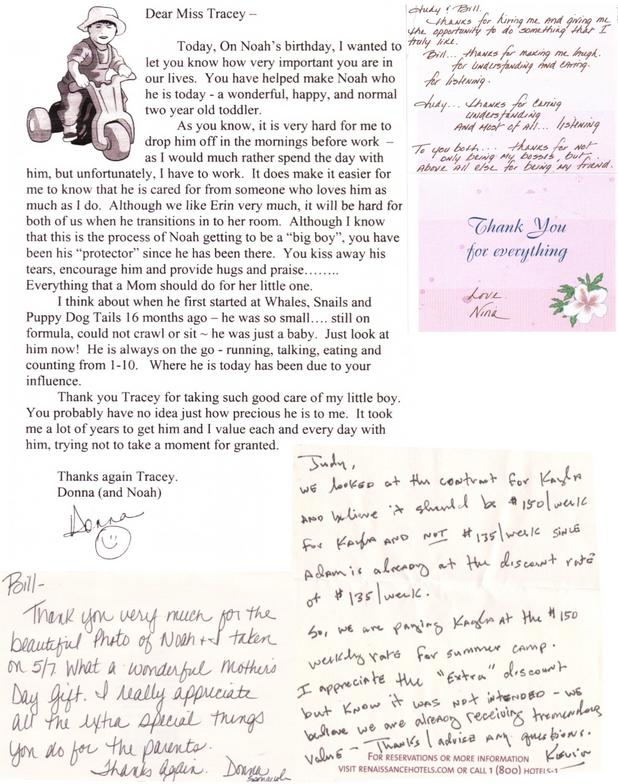 Dear Miss Tracey –
Today, On Noah's birthday, I wanted to
let you know how very important you are in
our lives. You have helped make Noah who
he is today - a wonderful, happy, and normal
two year old toddler.
As you know, it is very hard for me to
drop him off in the mornings before work –
as I would much rather spend the day with
him, but unfortunately, I have to work. It does make it easier for
me to know that he is cared for from someone who loves him as
much as I do. Although we like Erin very much, it will be hard for
both of us when he transitions in to her room. Although I know
that this is the process of Noah getting to be a "big boy", you have
been his "protector" since he has been there. You kiss away his
tears, encourage him and provide hugs and praise……..
Everything that a Mom should do for her little one.
I think about when he first started at Whales, Snails and
Puppy Dog Tails 16 months ago ~ he was so small…. still on
formula, could not crawl or sit ~ he was just a baby. Just look at
him now! He is always on the go - running, talking, eating and
counting from 1-10. Where he is today has been due to your
influence.
Thank you Tracey for taking such good care of my little boy.
You probably have no idea just how precious he is to me. It took
me a lot of years to get him and I value each and every day with
him, trying not to take a moment for granted.
Thanks again Tracey.
Donna (and Noah)
Donna
Judy & Bill.
Thanks for hiring me and giving me
the opportunity to do something that I
truly like.
Bill... thanks for making me laugh.
for understanding and caring.
for listening.
Judy... thanks for caring
understanding
And most of all... listening
To you both... thanks for not
only being my bosses, but
above all else for being my friend.
Thank You
for everything
Love
Nina
Judy,
We looked at the contract for Kayla
and believe it should be $150/week
for Kayla and NOT $135/week since
Adam is already at the discount rate
of $135/week.
So, we are paying Kayla at the $150
weekly rate for summer camp.
I appreciate the "Extra" discount
but know it was not intended - we
believe we are already receiving tremendous
value - Thanks / advise any questions.
Kevin
FOR RESERVATIONS OR MORE INFORMATION
VISIT RENAISSANCEHOTELS.COM OR CALL 1 (800) HOTELS-1
Bill-
Thank you very much for the
beautiful Photo of Noah + I taken
on 5/7. What a wonderful Mother's
Day Gift. I really appreciate
all the extra special things
you do for the parents.
Thanks Again. Donna